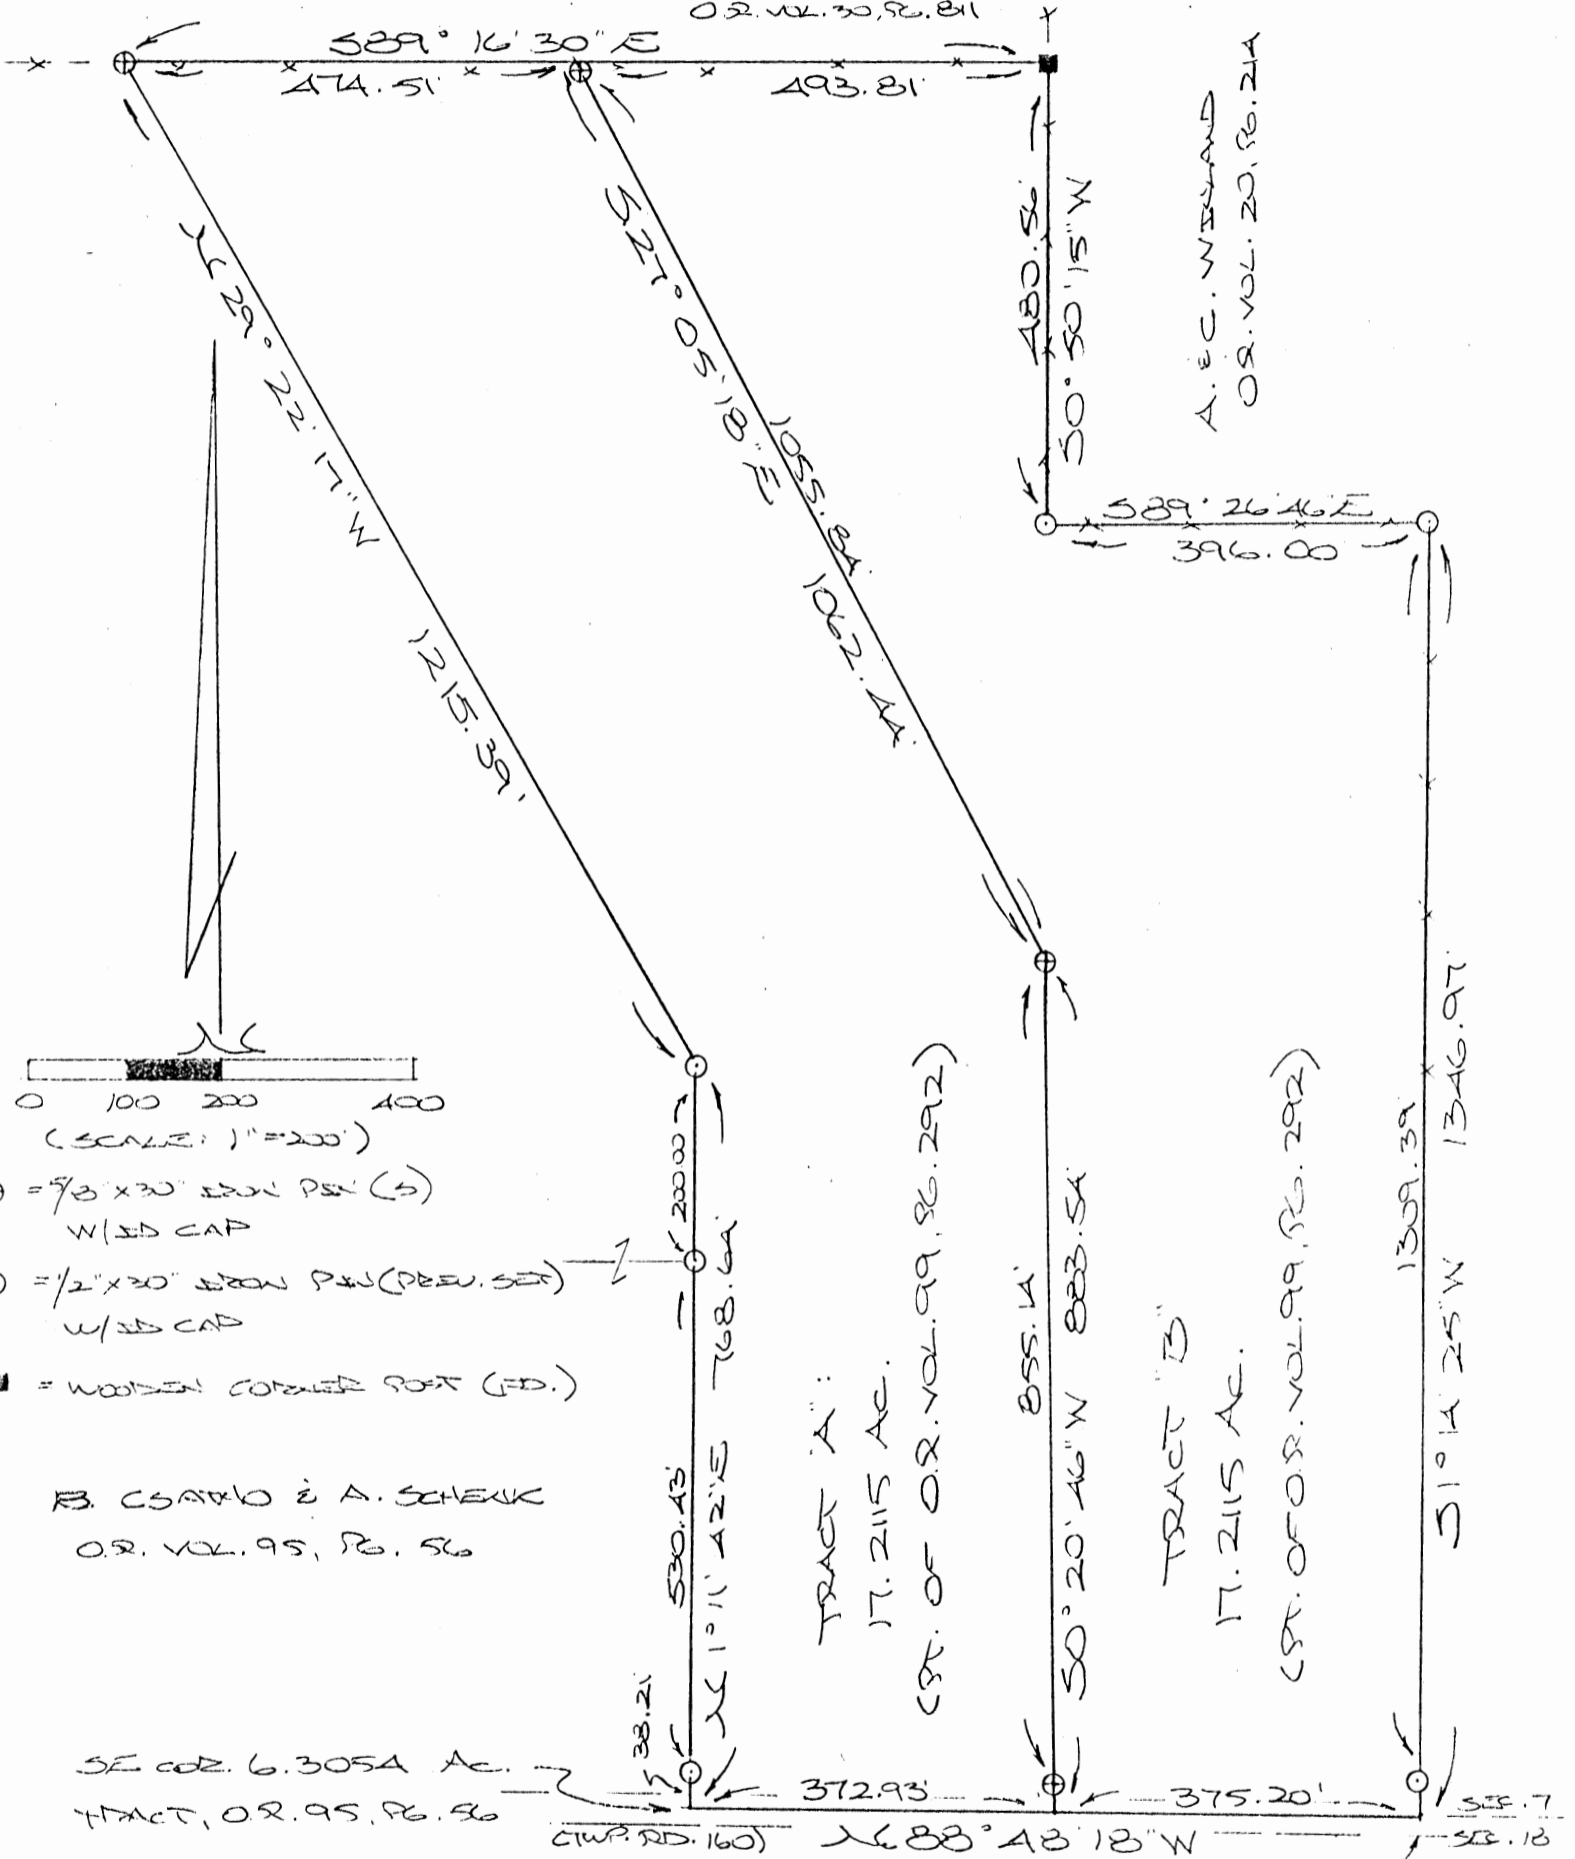 O.R. VOL. 30, PG. 811
S89° 16' 30" E
474.51'
493.81'
480.56'
S0° 50' 15" W
A. & C. WEILAND
O.R. VOL. 20, PG. 214
N 29° 22' 17" W
1215.39'
S 27° 05' 18" E
1055.84'
1062.44'
S89° 26' 46" E
396.00
N
0 100 200 400
(SCALE: 1"=200')
= 5/8"x30" IRON PIN (S)
W/ID CAP
= 1/2"x30" IRON PIN (PREV. SET)
W/ID CAP
= WOODEN CORNER POST (FD.)
B. CSANKO & A. SCHENK
O.R. VOL. 95, PG. 56
200.00
530.43'
38.21'
N 1° 11' 42" E 768.64'
TRACT "A":
17.2115 AC.
(PT. OF O.R. VOL. 99, PG. 292)
855.14'
S0° 20' 46" W 883.54'
TRACT "B"
17.2115 AC.
(PT. OF O.R. VOL. 99, PG. 292)
1309.39'
S1° 14' 25" W 1346.97'
SE COR. 6.3054 AC.
TRACT, O.R. 95, PG. 56
372.93'
375.20'
(TWP. RD. 160)
N 88° 48' 18" W
SEC. 7
SEC. 18